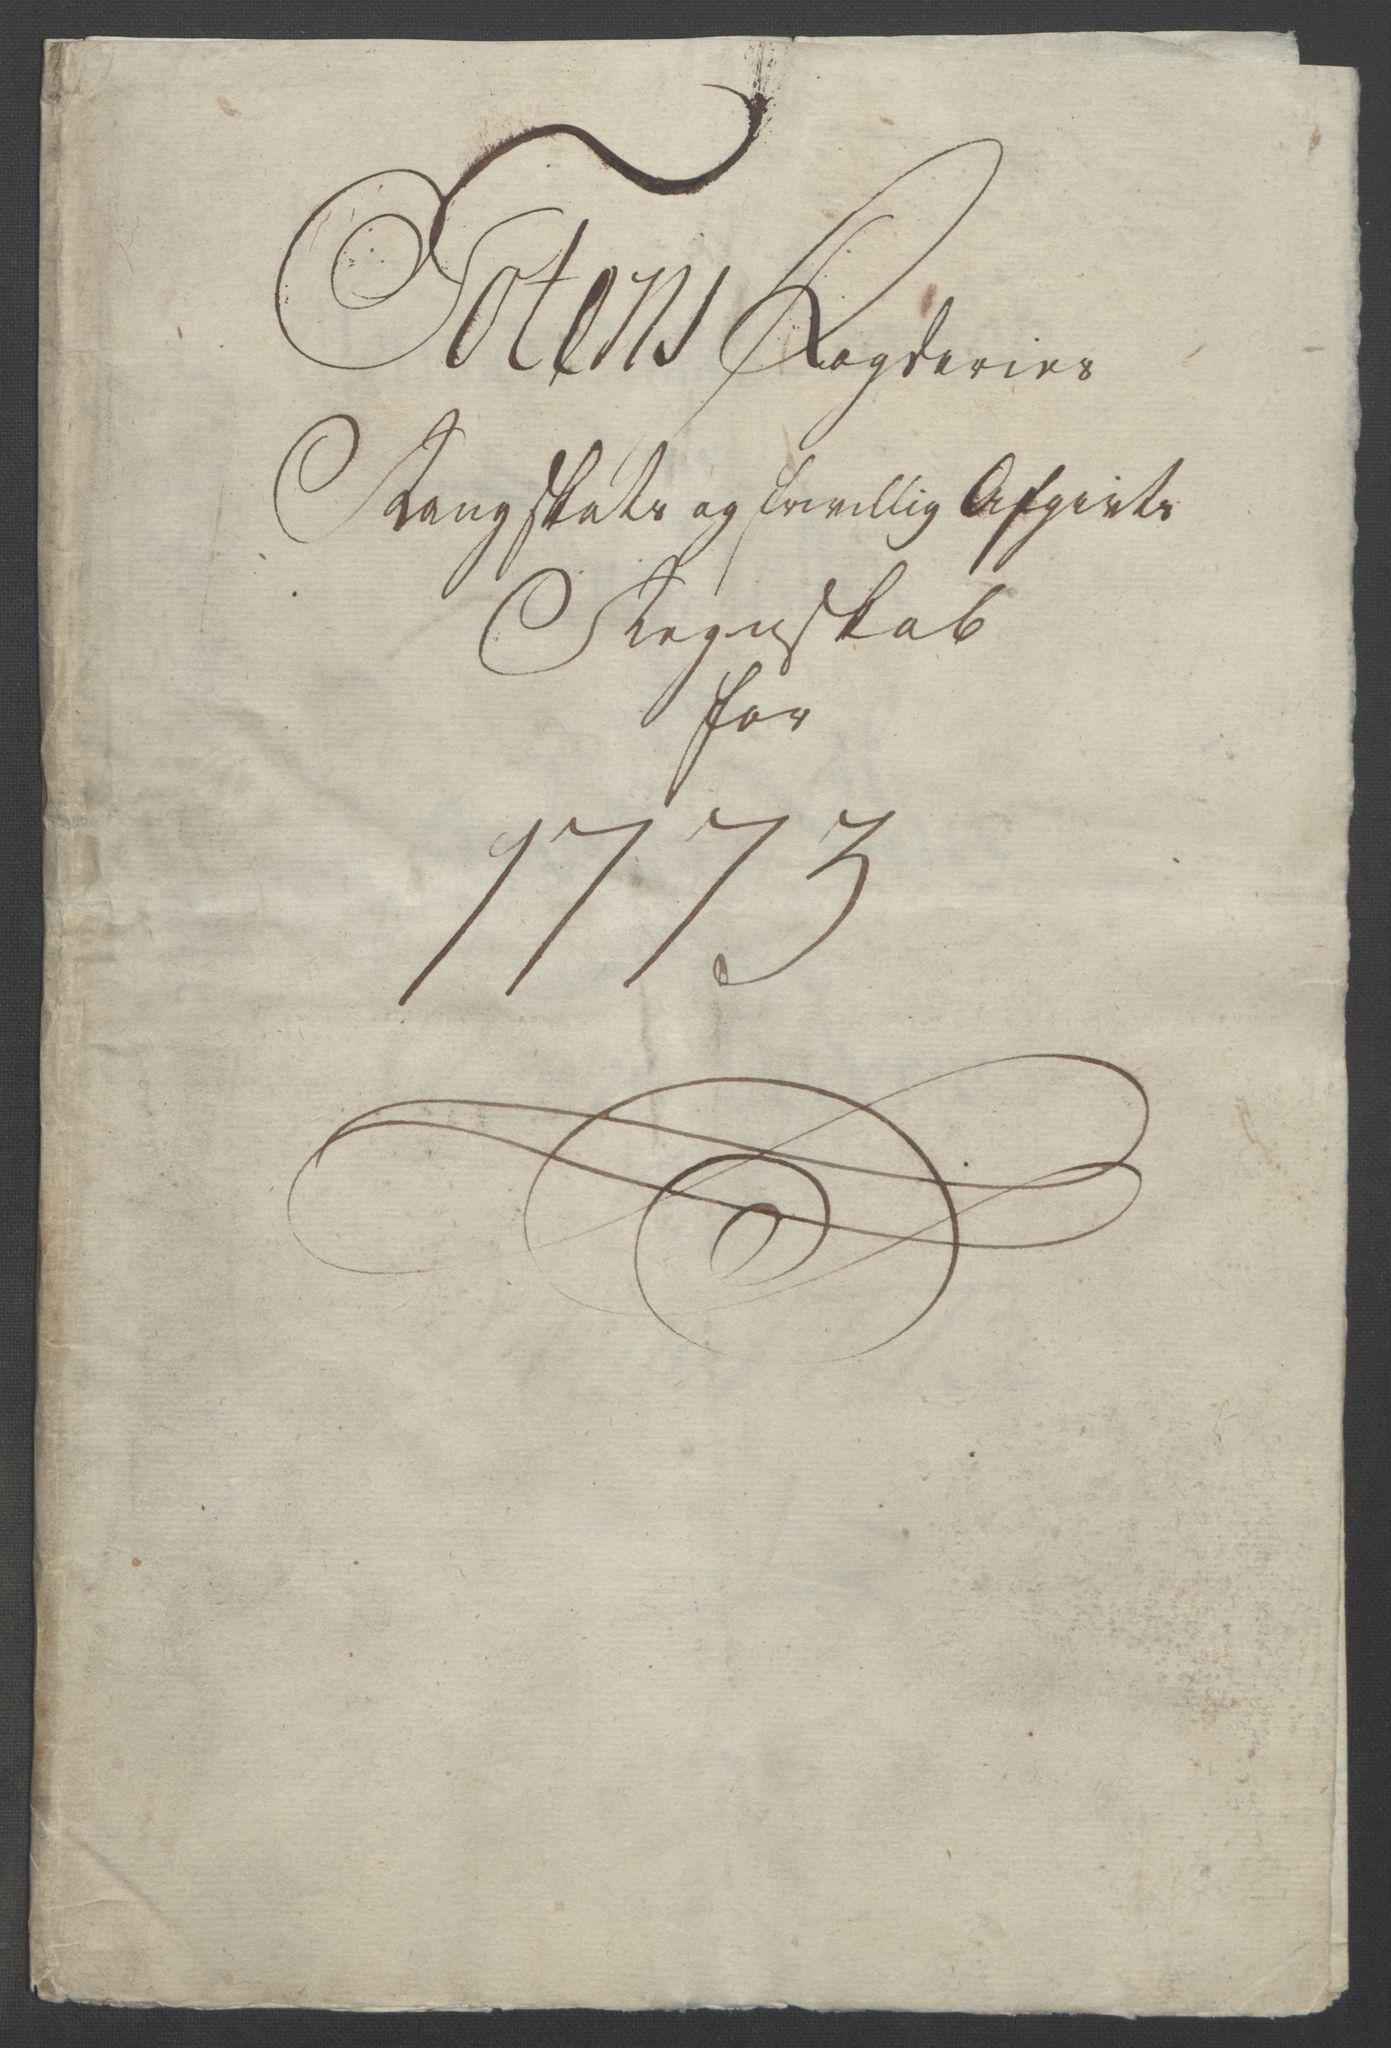 Totens Fogderies
Rangskats og frivillig Afgivts
Regnskab
for
1773